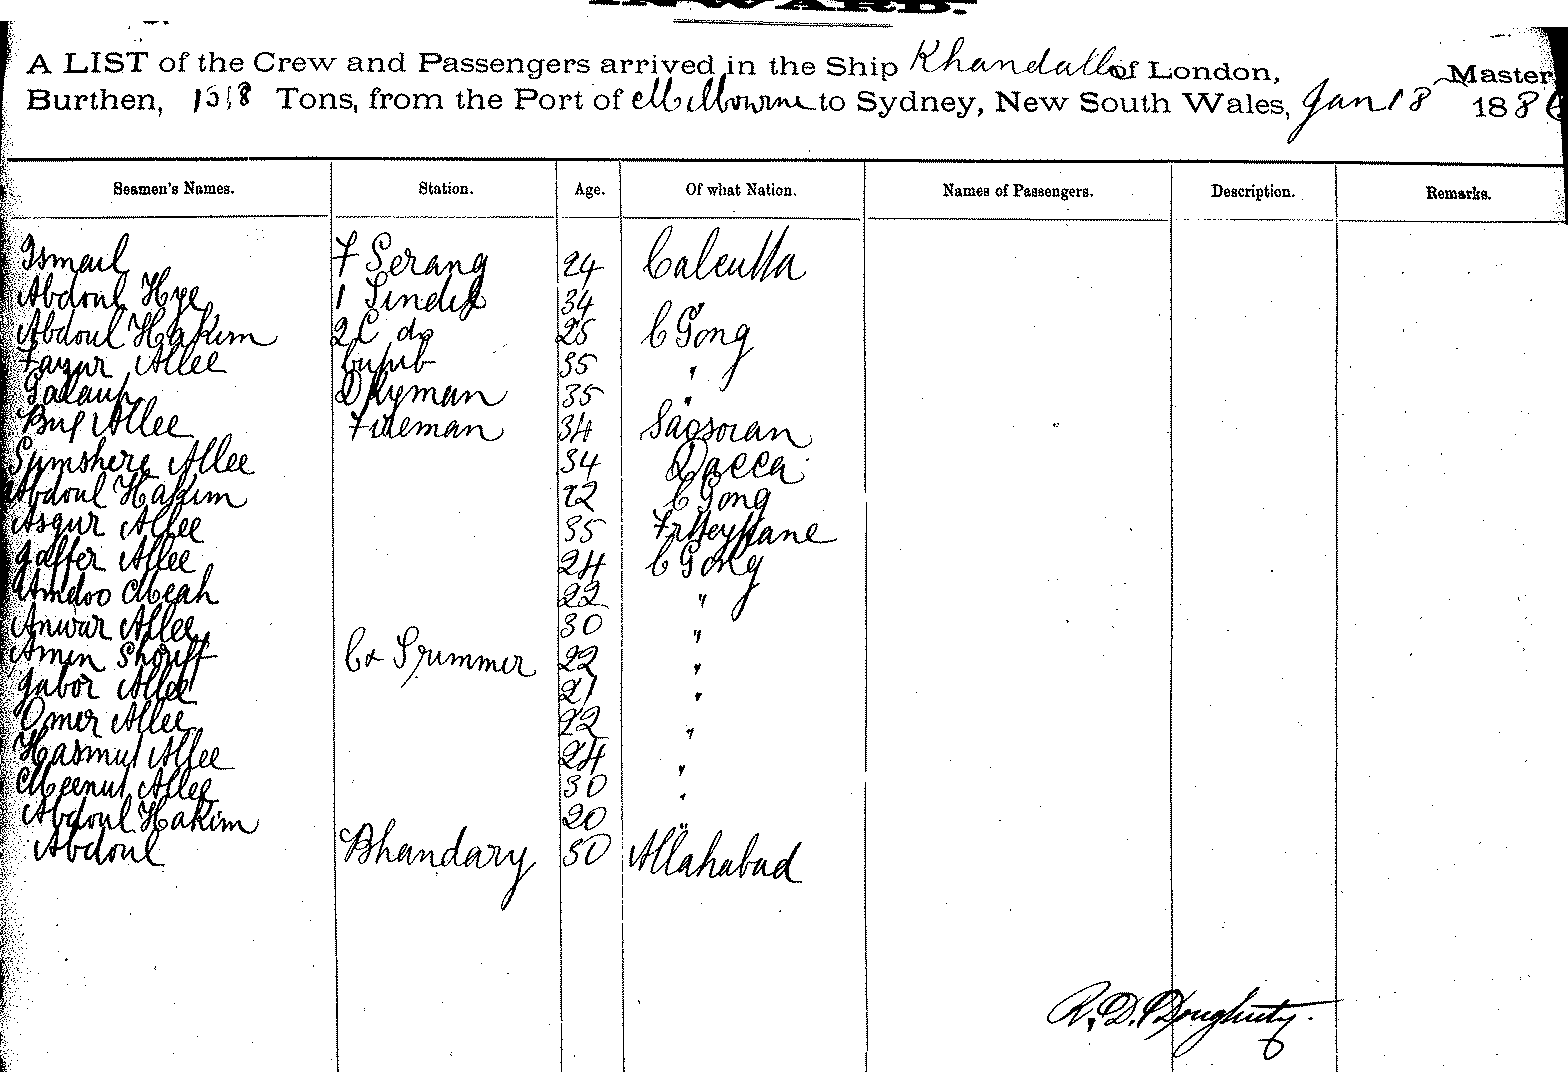 INWARD.
A LIST of the Crew and Passengers arrived in the Ship Khandalla of London, Master
Burthen, 1318 Tons, from the Port of Melbourne to Sydney, New South Wales, Jan 18 1886
Seamen's Names. Station. Age. Of what Nation. Names of Passengers. Description. Remarks.
Ismail F Serang 24 Calcutta
Abdoul Hye 1 Tindel 34 "
Abdoul Hakim 2 do 25 C Gong
Fazur Allee 35 "
35 "
Allee Fireman 34
Sumshere Allee 34 Dacca
Abdoul Hakim 22 C Gong
Asgur Allee 35
Gaffer Allee 24 C Gong
Amdoo Meah 22 "
Anwar Allee 30 "
Amin Shouff Co Trummer 22 "
Jabor Allee 21 "
Omer Allee 22 "
Hasmut Allee 24 "
Meenut Allee 30 "
Abdoul Hakim 20 "
Abdoul Bhandary 50 Allahabad
R. D. Doughuty.